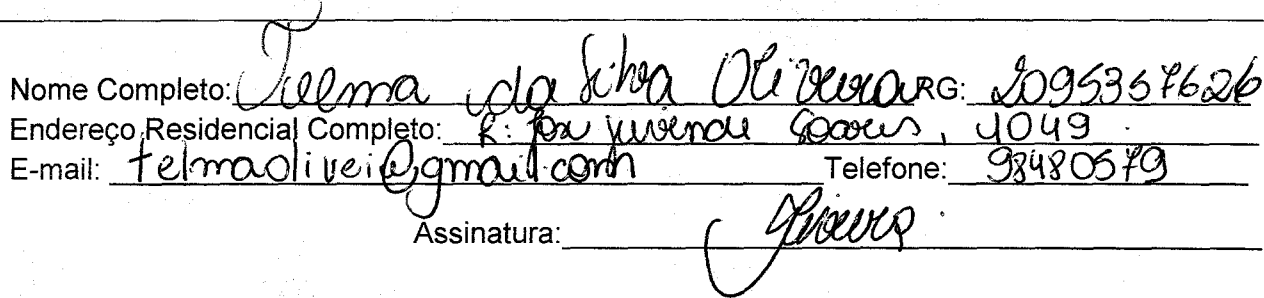 Nome Completo: Telma da Silva Oliveira RG: 2095357626
Endereço Residencial Completo: R: juvende Soares, 1049
E-mail: telmaolivei@gmail.com Telefone: 98480579
Assinatura: